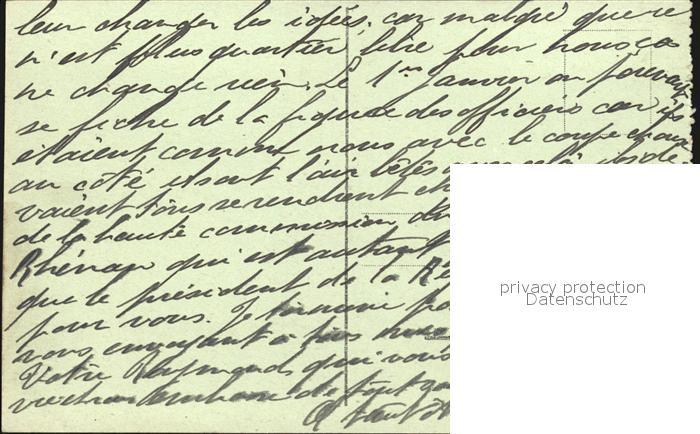 leur changer les idées. car malgré que ce
n'est plus quartier libre pour nous ça
ne change rien. Le 1er Janvier on pouvait
se fiche de la figure des officiers car ils
étaient comme nous avec le coupe choux
au côté ils ont l'air bêtes
vaient tous se rendre
de la haute commission
Rhénan qui est autant
que le président de la Ré
pour vous. Je termine
vous envoyant à tous
Votre Raymond qui vous
embrasse de tout
A tantôt
privacy protection
Datenschutz